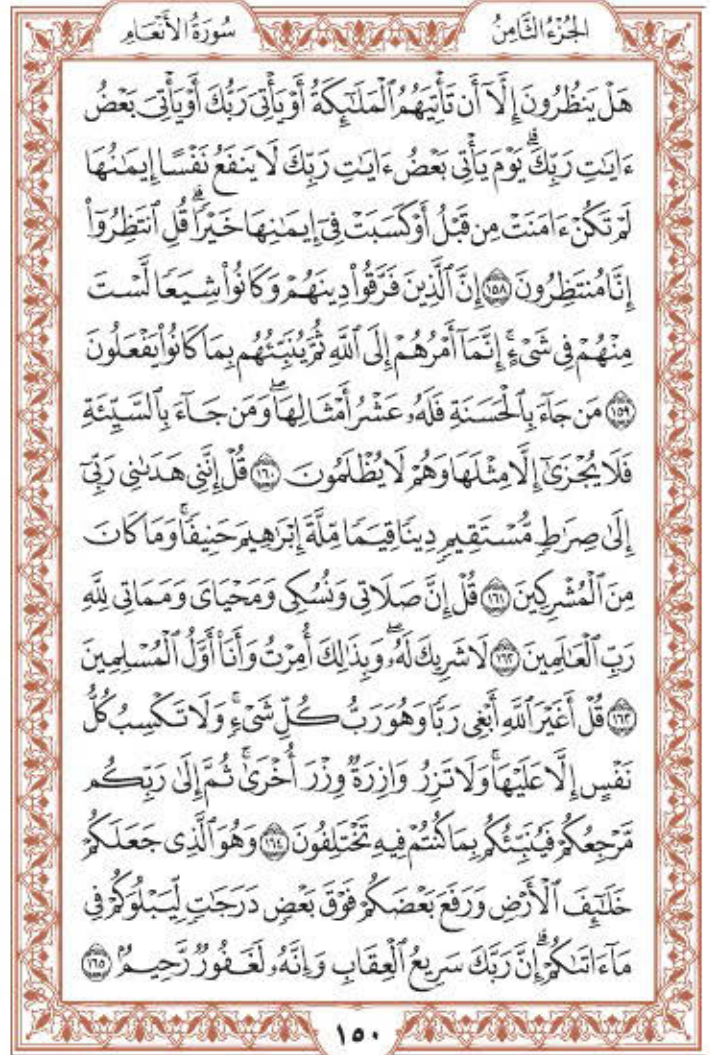 الجُزْءُ الثَّامِنُ
سُورَةُ الأَنْعَامِ
هَلْ يَنظُرُونَ إِلَّآ أَن تَأْتِيَهُمُ ٱلْمَلَـٰٓئِكَةُ أَوْ يَأْتِىَ رَبُّكَ أَوْ يَأْتِىَ بَعْضُ
ءَايَـٰتِ رَبِّكَ ۗ يَوْمَ يَأْتِى بَعْضُ ءَايَـٰتِ رَبِّكَ لَا يَنفَعُ نَفْسًا إِيمَـٰنُهَا
لَمْ تَكُنْ ءَامَنَتْ مِن قَبْلُ أَوْ كَسَبَتْ فِىٓ إِيمَـٰنِهَا خَيْرًا ۗ قُلِ ٱنتَظِرُوٓا۟
إِنَّا مُنتَظِرُونَ ١٥٨ إِنَّ ٱلَّذِينَ فَرَّقُوا۟ دِينَهُمْ وَكَانُوا۟ شِيَعًا لَّسْتَ
مِنْهُمْ فِى شَىْءٍ ۚ إِنَّمَآ أَمْرُهُمْ إِلَى ٱللَّهِ ثُمَّ يُنَبِّئُهُم بِمَا كَانُوا۟ يَفْعَلُونَ
١٥٩ مَن جَآءَ بِٱلْحَسَنَةِ فَلَهُۥ عَشْرُ أَمْثَالِهَا ۖ وَمَن جَآءَ بِٱلسَّيِّئَةِ
فَلَا يُجْزَىٰٓ إِلَّا مِثْلَهَا وَهُمْ لَا يُظْلَمُونَ ١٦٠ قُلْ إِنَّنِى هَدَىٰنِى رَبِّىٓ
إِلَىٰ صِرَٰطٍ مُّسْتَقِيمٍ دِينًا قِيَمًا مِّلَّةَ إِبْرَٰهِيمَ حَنِيفًا ۚ وَمَا كَانَ
مِنَ ٱلْمُشْرِكِينَ ١٦١ قُلْ إِنَّ صَلَاتِى وَنُسُكِى وَمَحْيَاىَ وَمَمَاتِى لِلَّهِ
رَبِّ ٱلْعَـٰلَمِينَ ١٦٢ لَا شَرِيكَ لَهُۥ ۖ وَبِذَٰلِكَ أُمِرْتُ وَأَنَا۠ أَوَّلُ ٱلْمُسْلِمِينَ
١٦٣ قُلْ أَغَيْرَ ٱللَّهِ أَبْغِى رَبًّا وَهُوَ رَبُّ كُلِّ شَىْءٍ ۚ وَلَا تَكْسِبُ كُلُّ
نَفْسٍ إِلَّا عَلَيْهَا ۚ وَلَا تَزِرُ وَازِرَةٌ وِزْرَ أُخْرَىٰ ۚ ثُمَّ إِلَىٰ رَبِّكُم
مَّرْجِعُكُمْ فَيُنَبِّئُكُم بِمَا كُنتُمْ فِيهِ تَخْتَلِفُونَ ١٦٤ وَهُوَ ٱلَّذِى جَعَلَكُمْ
خَلَـٰٓئِفَ ٱلْأَرْضِ وَرَفَعَ بَعْضَكُمْ فَوْقَ بَعْضٍ دَرَجَـٰتٍ لِّيَبْلُوَكُمْ فِى
مَآ ءَاتَىٰكُمْ ۗ إِنَّ رَبَّكَ سَرِيعُ ٱلْعِقَابِ وَإِنَّهُۥ لَغَفُورٌ رَّحِيمٌۢ ١٦٥
١٥٠